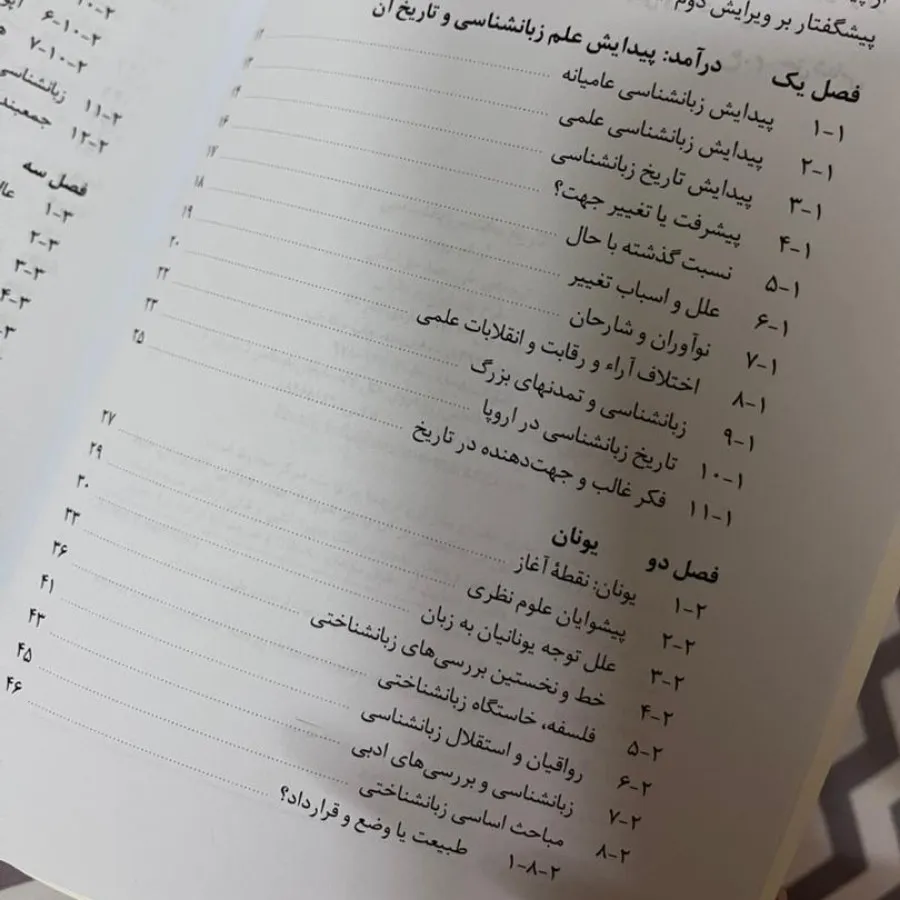 پیشگفتار بر ویرایش دوم
فصل یک درآمد: پیدایش علم زبانشناسی و تاریخ آن
۱-۱ پیدایش زبانشناسی عامیانه
۱-۲ پیدایش زبانشناسی علمی ۱۲
۱-۳ پیدایش تاریخ زبانشناسی ۱۴
۱-۴ پیشرفت یا تغییر جهت؟ ۱۶
۱-۵ نسبت گذشته با حال ۱۷
۱-۶ علل و اسباب تغییر ۱۸
۱-۷ نوآوران و شارحان ۱۹
۱-۸ اختلاف آراء و رقابت و انقلابات علمی ۲۰
۱-۹ زبانشناسی و تمدنهای بزرگ ۲۲
۱-۱۰ تاریخ زبانشناسی در اروپا ۲۳
۱-۱۱ فکر غالب و جهت‌دهنده در تاریخ ۲۵
فصل دو یونان
۲-۱ یونان: نقطهٔ آغاز ۲۷
۲-۲ پیشوایان علوم نظری ۲۹
۲-۳ علل توجه یونانیان به زبان ۳۰
۲-۴ خط و نخستین بررسی‌های زبانشناختی ۳۳
۲-۵ فلسفه، خاستگاه زبانشناختی ۳۶
۲-۶ رواقیان و استقلال زبانشناسی ۴۱
۲-۷ زبانشناسی و بررسی‌های ادبی ۴۳
۲-۸ مباحث اساسی زبانشناختی ۴۵
۲-۸-۱ طبیعت یا وضع و قرارداد؟ ۴۶
۲-۱۰-۶
۲-۱۰-۷
۲-۱۱ زبانشناسی
۲-۱۲
فصل سه
۳-۱
۳-۲
۳-۳
۳-۴